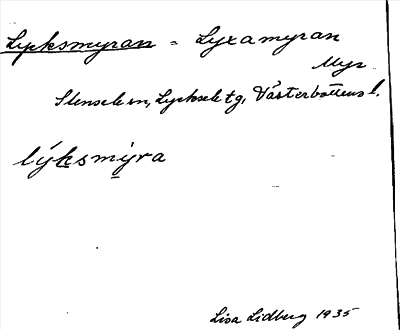 Lycksmyran = Lyxamyran
Myr
Stensele sn, Lycksele tg, Västerbottens l.
lýksmýra
Lisa Lidberg 1935